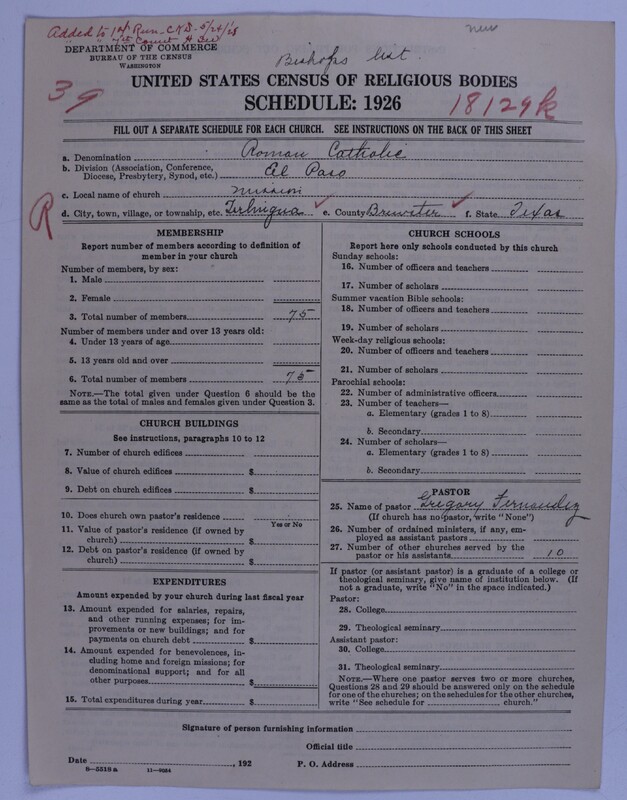 Added to 1st Run - C.N.D. 5/24/28
" " 7th Count H.
DEPARTMENT OF COMMERCE
BUREAU OF THE CENSUS
WASHINGTON
new
Bishops list.
UNITED STATES CENSUS OF RELIGIOUS BODIES
39
SCHEDULE: 1926
18129k
FILL OUT A SEPARATE SCHEDULE FOR EACH CHURCH. SEE INSTRUCTIONS ON THE BACK OF THIS SHEET
a. Denomination Roman Catholic
b. Division (Association, Conference, Diocese, Presbytery, Synod, etc.) El Paso
c. Local name of church Mission
R
d. City, town, village, or township, etc. Terlingua e. County Brewster f. State Texas
MEMBERSHIP
Report number of members according to definition of
member in your church
Number of members, by sex:
1. Male
2. Female
3. Total number of members 75
Number of members under and over 13 years old:
4. Under 13 years of age
5. 13 years old and over
6. Total number of members 75
NOTE.—The total given under Question 6 should be
same as the total of males and females given under Question 3.
CHURCH BUILDINGS
See instructions, paragraphs 10 to 12
7. Number of church edifices
8. Value of church edifices $
9. Debt on church edifices $
10. Does church own pastor's residence
Yes or No
11. Value of pastor's residence (if owned by
church) $
12. Debt on pastor's residence (if owned by
church) $
EXPENDITURES
Amount expended by your church during last fiscal year
13. Amount expended for salaries, repairs,
and other running expenses; for im-
provements or new buildings; and for
payments on church debt $
14. Amount expended for benevolences, in-
cluding home and foreign missions; for
denominational support; and for all
other purposes $
15. Total expenditures during year $
CHURCH SCHOOLS
Report here only schools conducted by this church
Sunday schools:
16. Number of officers and teachers
17. Number of scholars
Summer vacation Bible schools:
18. Number of officers and teachers
19. Number of scholars
Week-day religious schools:
20. Number of officers and teachers
21. Number of scholars
Parochial schools:
22. Number of administrative officers
23. Number of teachers—
a. Elementary (grades 1 to 8)
b. Secondary
24. Number of scholars—
a. Elementary (grades 1 to 8)
b. Secondary
PASTOR
25. Name of pastor Gregory Fernandez
(If church has no pastor, write "None")
26. Number of ordained ministers, if any, em-
ployed as assistant pastors
27. Number of other churches served by the
pastor or his assistants 10
If pastor (or assistant pastor) is a graduate of a college or
theological seminary, give name of institution below. (If
not a graduate, write "No" in the space indicated.)
Pastor:
28. College
29. Theological seminary
Assistant pastor:
30. College
31. Theological seminary
NOTE.—Where one pastor serves two or more churches,
Questions 28 and 29 should be answered only on the schedule
for one of the churches; on the schedules for the other churches,
write "See schedule for church."
Signature of person furnishing information
Official title
Date , 192 P. O. Address
8—5518 a 11—9034